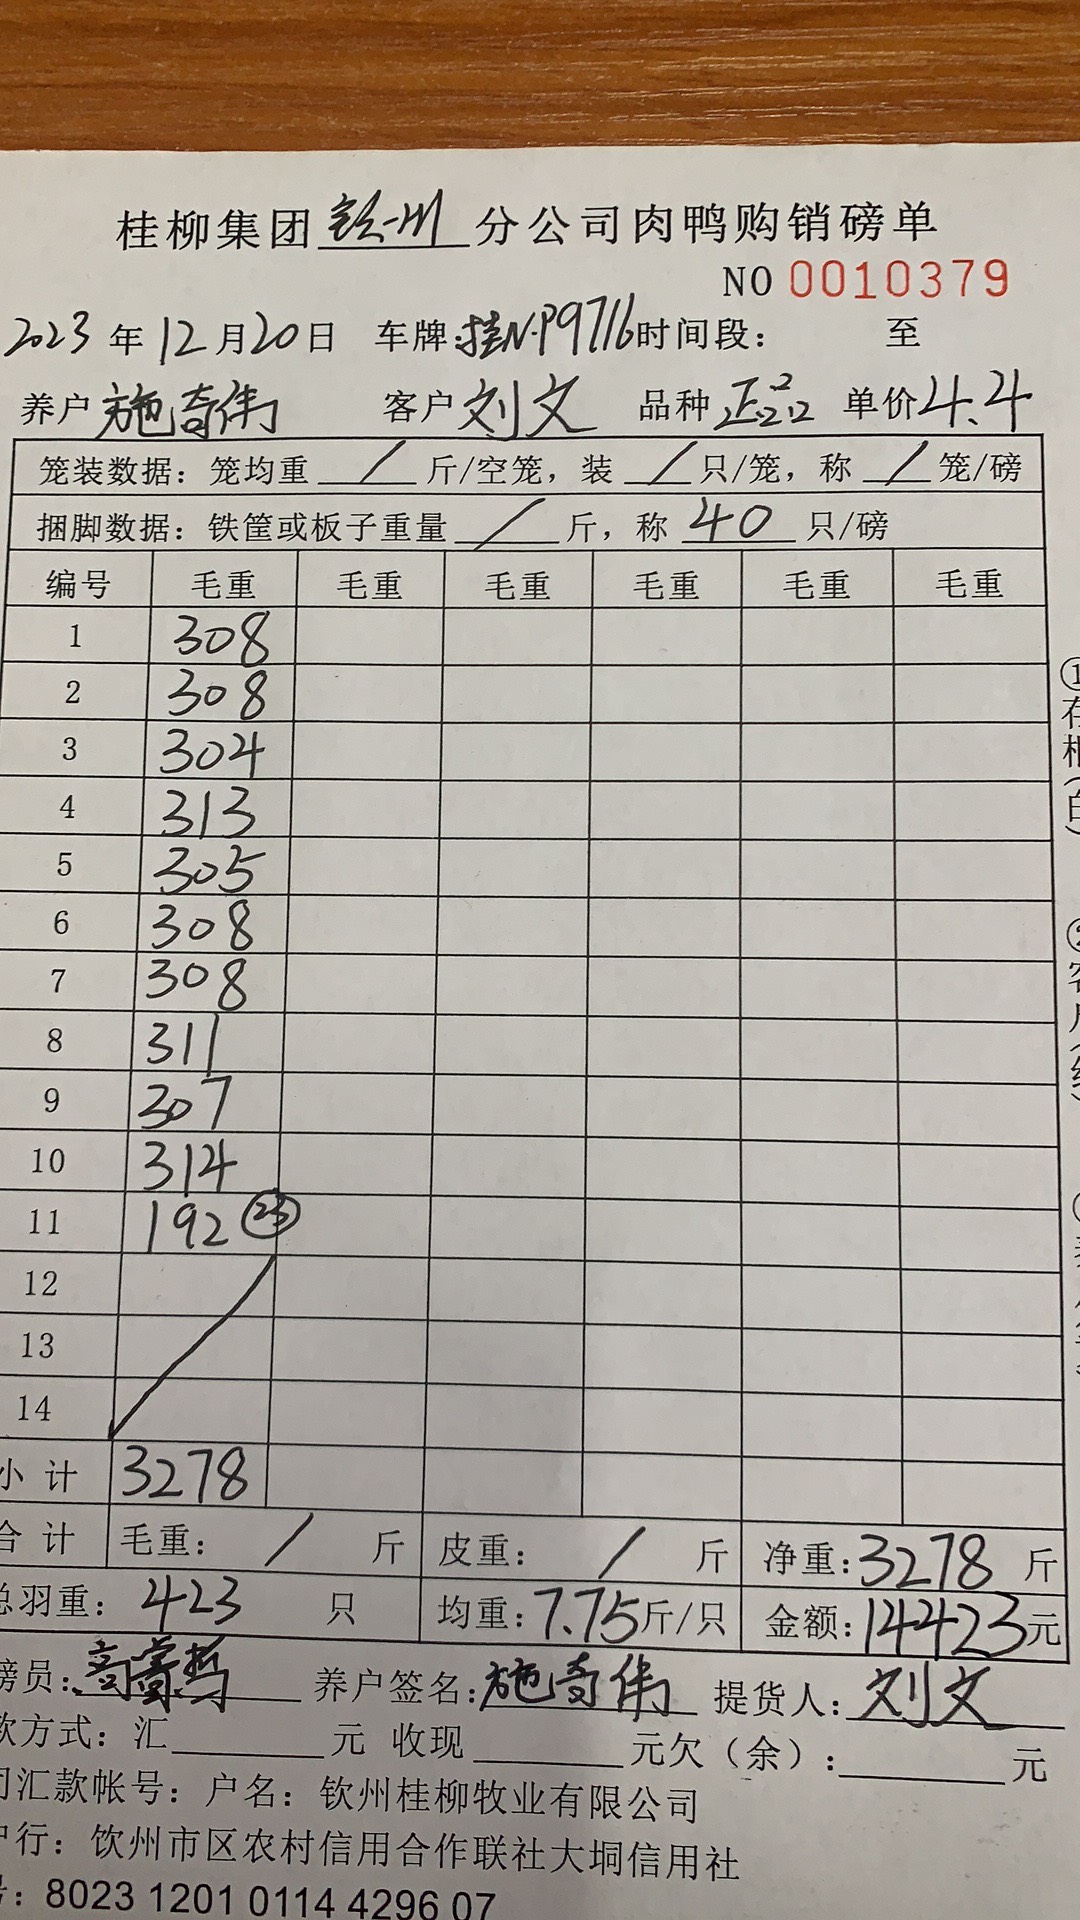 桂柳集团钦州分公司肉鸭购销磅单
NO 0010379
2023年12月20日 车牌:桂N·P9716时间段: 至
养户施奇伟 客户刘文 品种正品 单价4.4
笼装数据: 笼均重 / 斤/空笼, 装 / 只/笼, 称 / 笼/磅
捆脚数据: 铁筐或板子重量 / 斤, 称 40 只/磅
编号 毛重 毛重 毛重 毛重 毛重 毛重
1 308
2 308
3 304
4 313
5 305
6 308
7 308
8 311
9 307
10 314
11 192 ㉓
12
13
14
小计 3278
合计 毛重: / 斤 皮重: / 斤 净重:3278 斤
总羽重: 423 只 均重:7.75斤/只 金额:14423元
磅员: 养户签名:施奇伟 提货人:刘文
款方式: 汇 元 收现 元欠(余): 元
司汇款帐号: 户名: 钦州桂柳牧业有限公司
户行: 钦州市区农村信用合作联社大垌信用社
号: 8023 1201 0114 4296 07
①存根(白)
②客户(红)